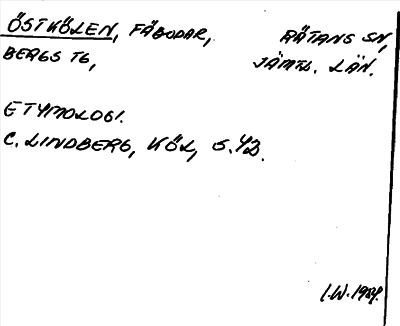 ÖSTKÖLEN, FÄBODAR, RÄTANS SN,
BERGS TG, JÄMTL. LÄN.
ETYMOLOGI.
C. LINDBERG, KÖL, S. 42.
I.W. 1984.